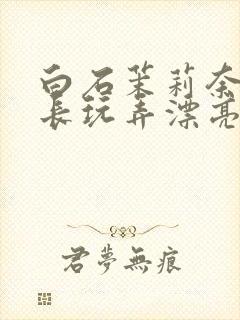 白石茉莉奈
长玩弄漂亮
君夢無痕